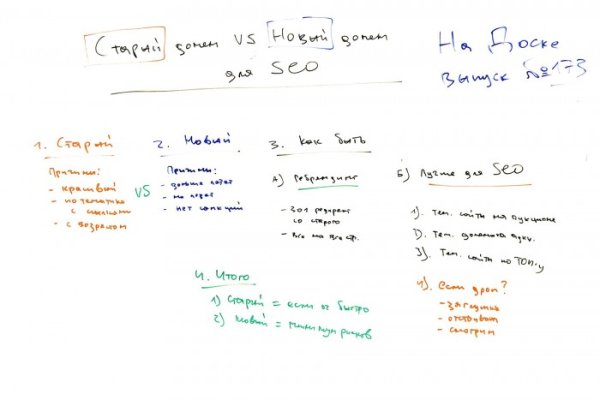 Старый домен VS Новый домен
для SEO
На Доске
выпуск №173
1. Старый
Причины:
- красивый
- по тематике
с ссылками
- с возрастом
VS
2. Новый
Причины:
- дольше
- нет санкций
3. Как быть
А) Ребрендинг
- 301 редирект
со старого
- Все на все стр.
Б) Лучше для SEO
1). Тем. сайты на аукционе
2). Тем. домены аукц.
3). Тем. сайты по ТОП-у
4). Если дроп?
- загрузил
- отстоял
- смотрим
4. Итого
1) Старый = если оч быстро
2) Новый = минимум рисков